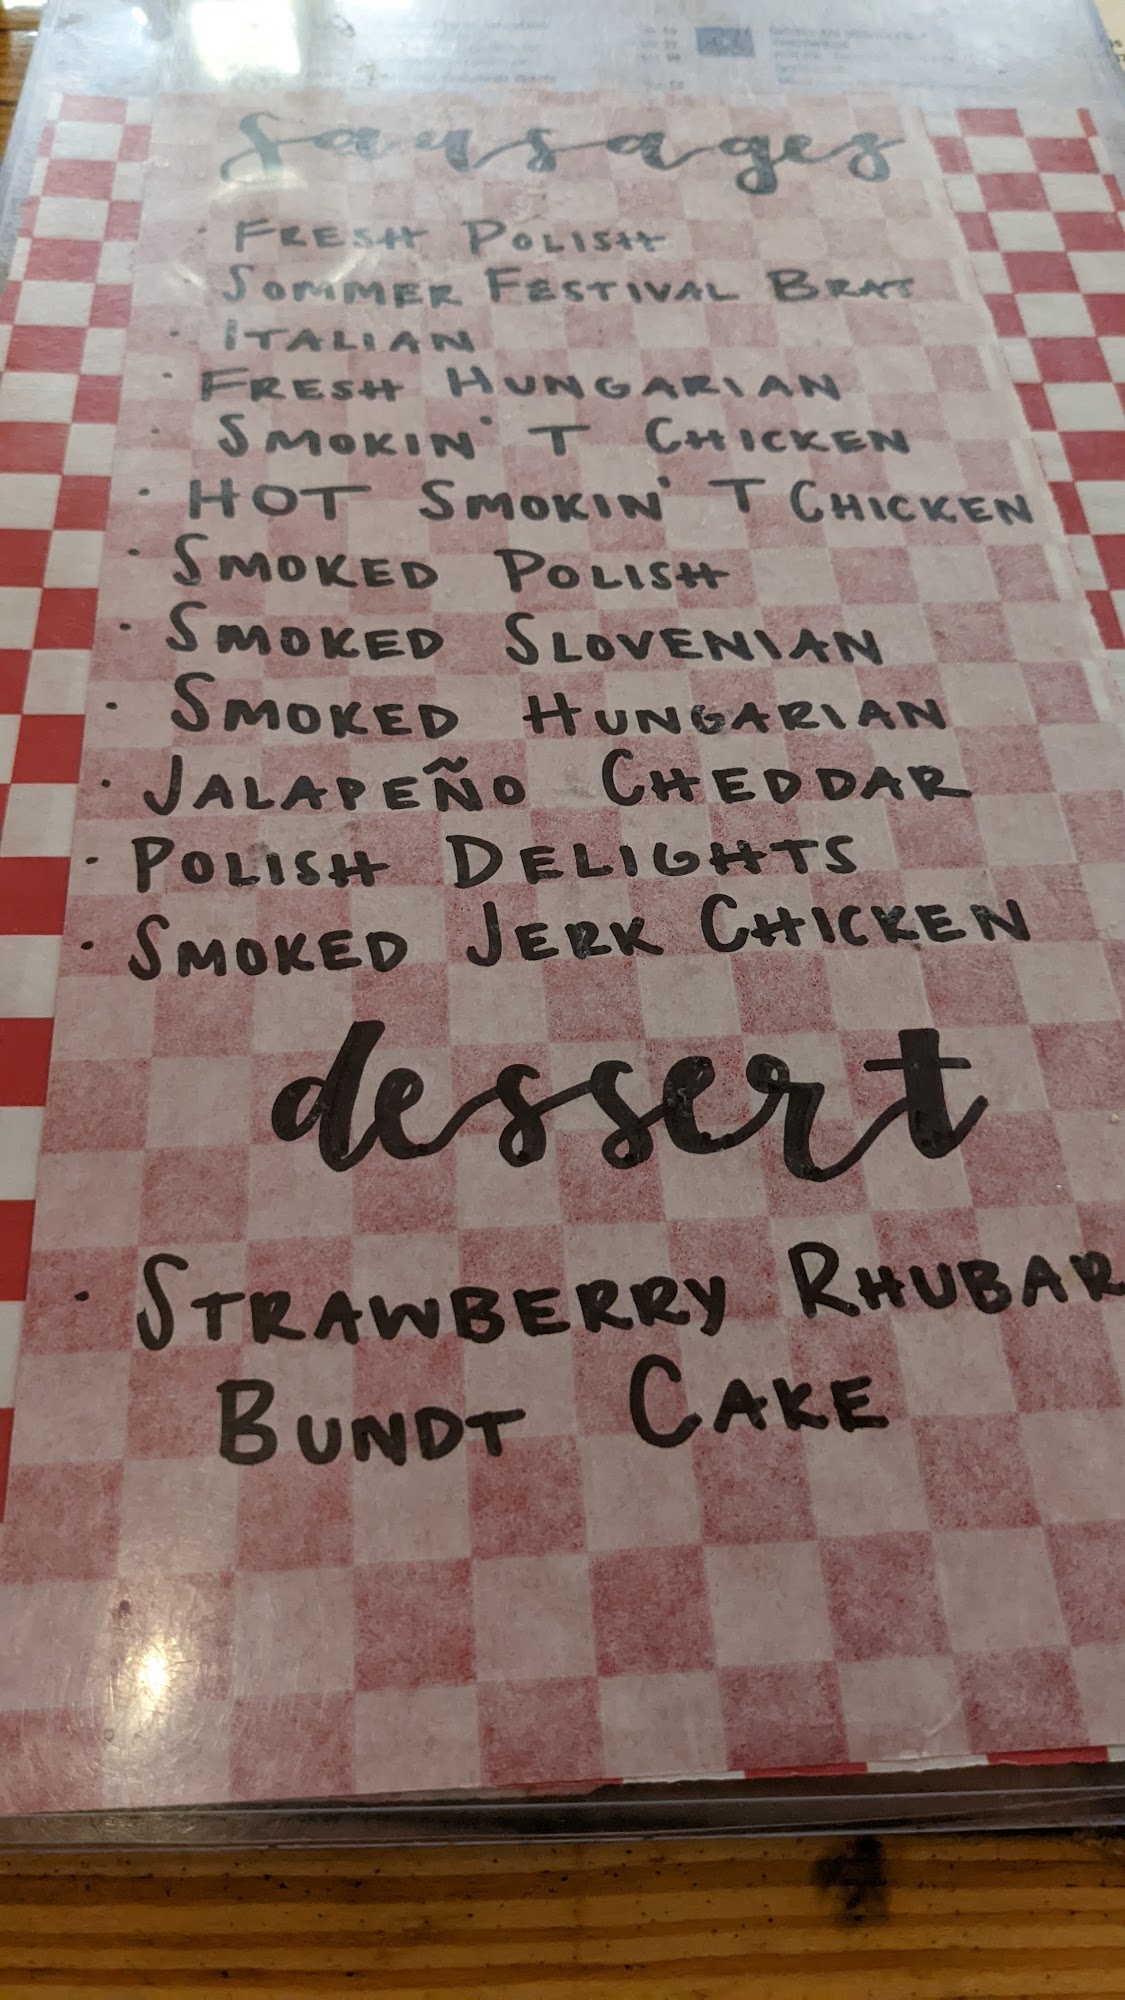 Sausages
· FRESH POLISH
· SOMMER FESTIVAL BRAT
· ITALIAN
· FRESH HUNGARIAN
· SMOKIN' T CHICKEN
· HOT SMOKIN' T CHICKEN
· SMOKED POLISH
· SMOKED SLOVENIAN
· SMOKED HUNGARIAN
· JALAPEÑO CHEDDAR
· POLISH DELIGHTS
· SMOKED JERK CHICKEN
dessert
· STRAWBERRY RHUBAR
BUNDT CAKE